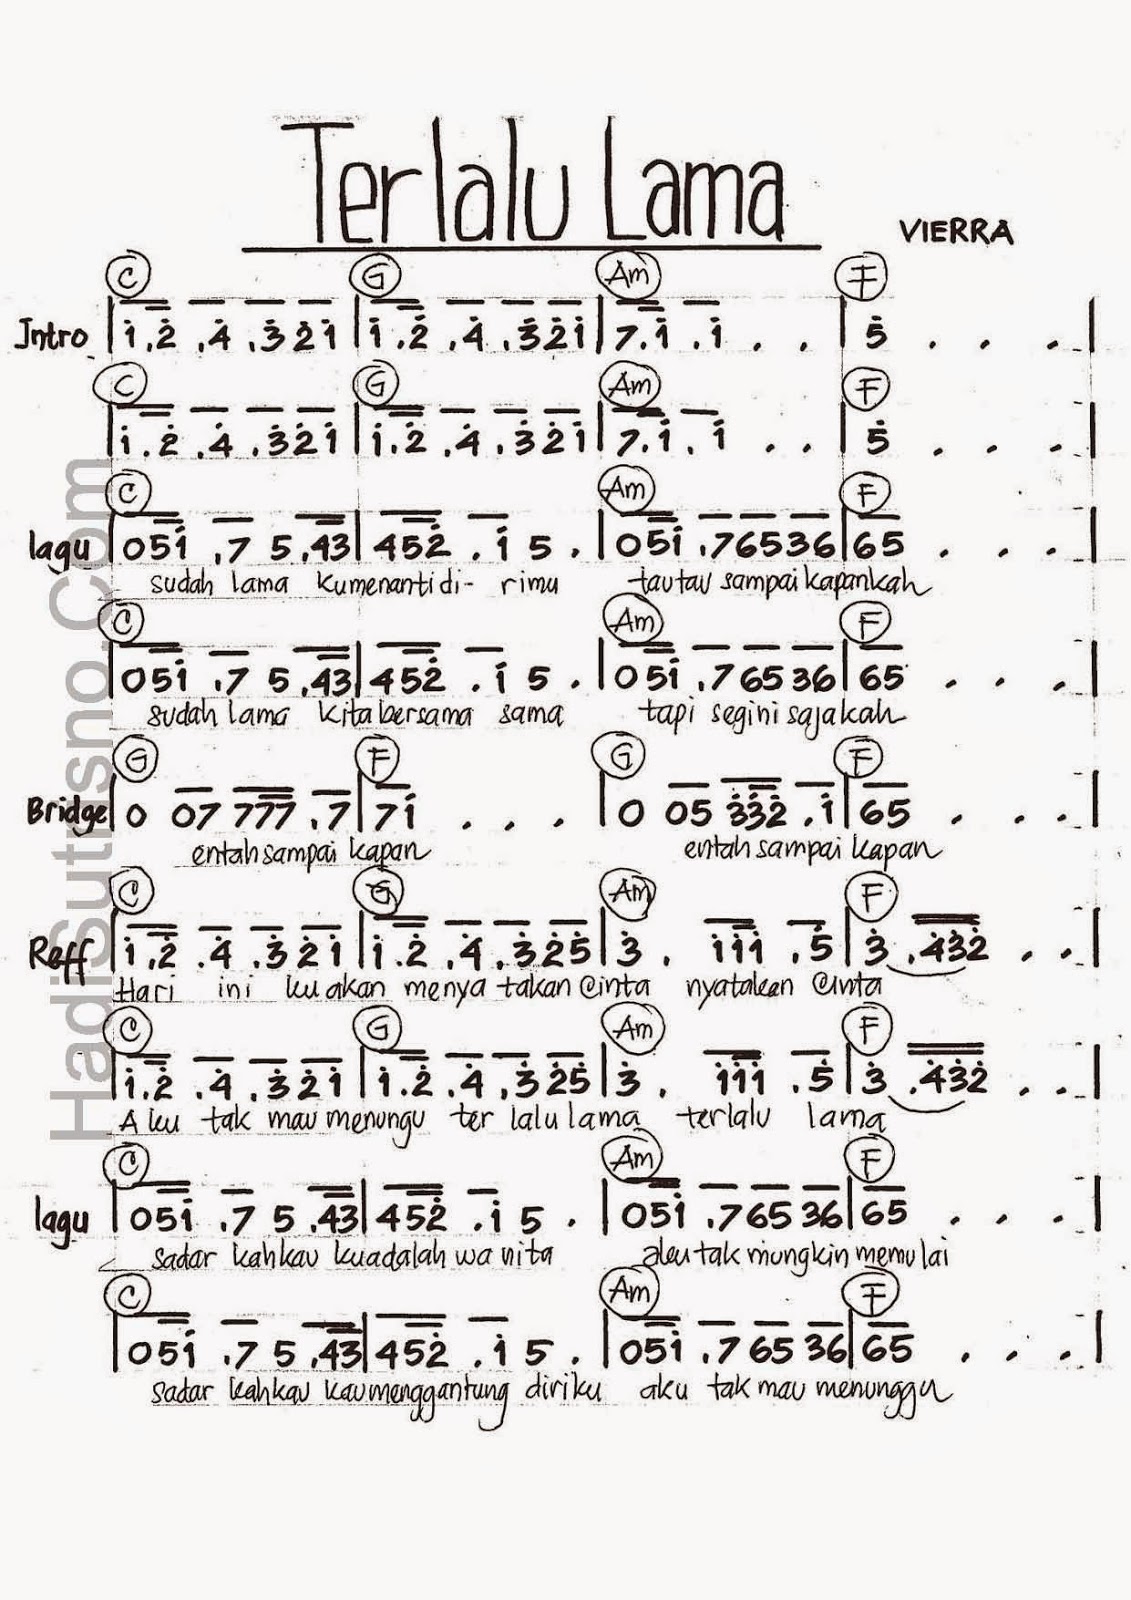 Terlalu Lama
VIERRA
C G Am F
Intro |1̇.2̇ .4̇ .3̇2̇1̇|1̇.2̇ .4̇ .3̇2̇1̇|7.1̇ .1̇ . . |5̇ . . .|
C G Am F
|1̇.2̇ .4̇ .3̇2̇1̇|1̇.2̇ .4̇ .3̇2̇1̇|7.1̇. 1̇ . . |5̇ . . .|
C Am F
lagu |051̇ .7 5.43|452̇ .1̇ 5 .|051̇ .76536|65 . . .|
sudah lama kumenanti di- rimu tautau sampai kapankah
C Am F
|051̇ .7 5.43|452̇ .1̇ 5 .|051̇ .76536|65 . . .|
sudah lama kita bersama sama tapi segini sajakah
G F G F
Bridge |0 07 777 .7|71̇ . . . |0 05 3̇3̇2̇ .1̇|65 . . .|
entah sampai kapan entah sampai kapan
C G Am F
Reff |1̇.2̇ .4̇ .3̇2̇1̇|1̇.2̇ .4̇ .3̇2̇5̇|3̇ . 1̇1̇1̇ .5̇|3̇ .4̇3̇2̇ . .|
Hari ini ku akan menya takan cinta nyatakan cinta
C G Am F
|1̇.2̇ .4̇ .3̇2̇1̇|1̇.2̇ .4̇ .3̇2̇5̇|3̇ . 1̇1̇1̇ .5̇|3̇ .4̇3̇2̇ . .|
Aku tak mau menungu ter lalu lama terlalu lama
C Am F
lagu |051̇ .7 5.43|452̇ .1̇ 5 .|051̇ .76536|65 . . .|
sadar kahkau kuadalah wa nita aku tak mungkin memulai
C Am F
|051̇ .7 5.43|452̇ .1̇ 5 .|051̇ .76536|65 . . .|
sadar kahkau kau menggantung diriku aku tak mau menunggu
HadiSutrisno.Com